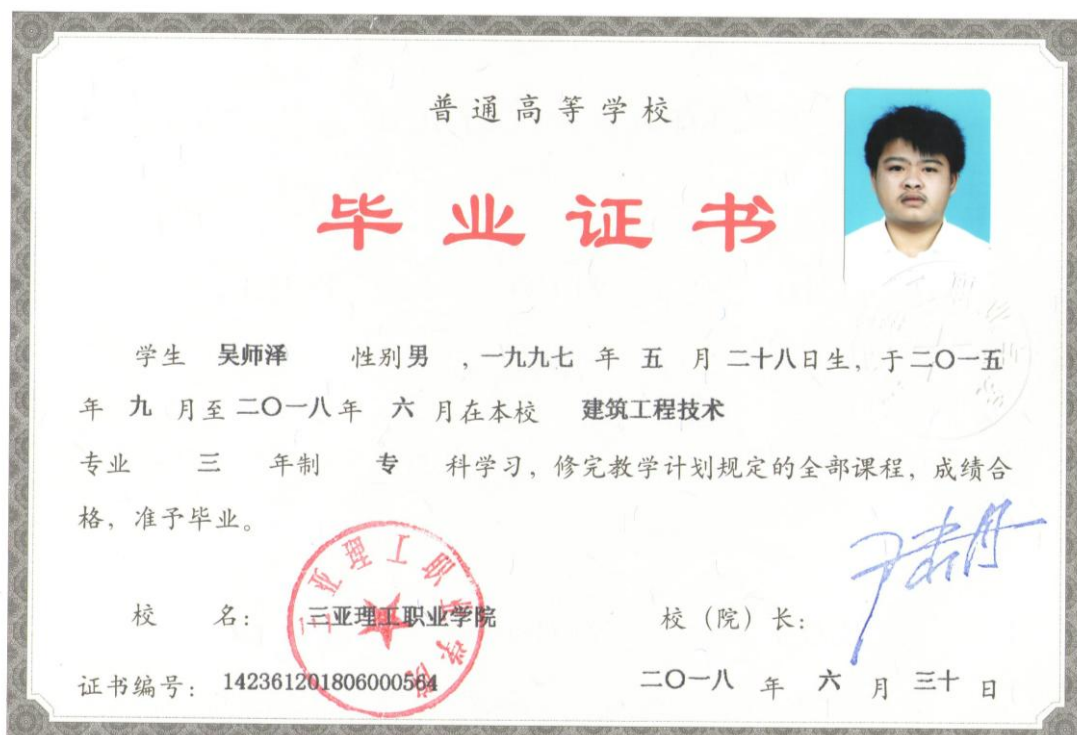 普通高等学校
毕业证书
学生 吴师泽 性别 男 ,一九九七 年 五 月 二十八日生,于二〇一五
年 九 月至二〇一八年 六 月在本校 建筑工程技术
专业 三 年制 专 科学习,修完教学计划规定的全部课程,成绩合
格,准予毕业。
三亚理工职业学院
校 名: 三亚理工职业学院 校(院)长:
证书编号: 142361201806000564 二〇一八 年 六 月 三十 日